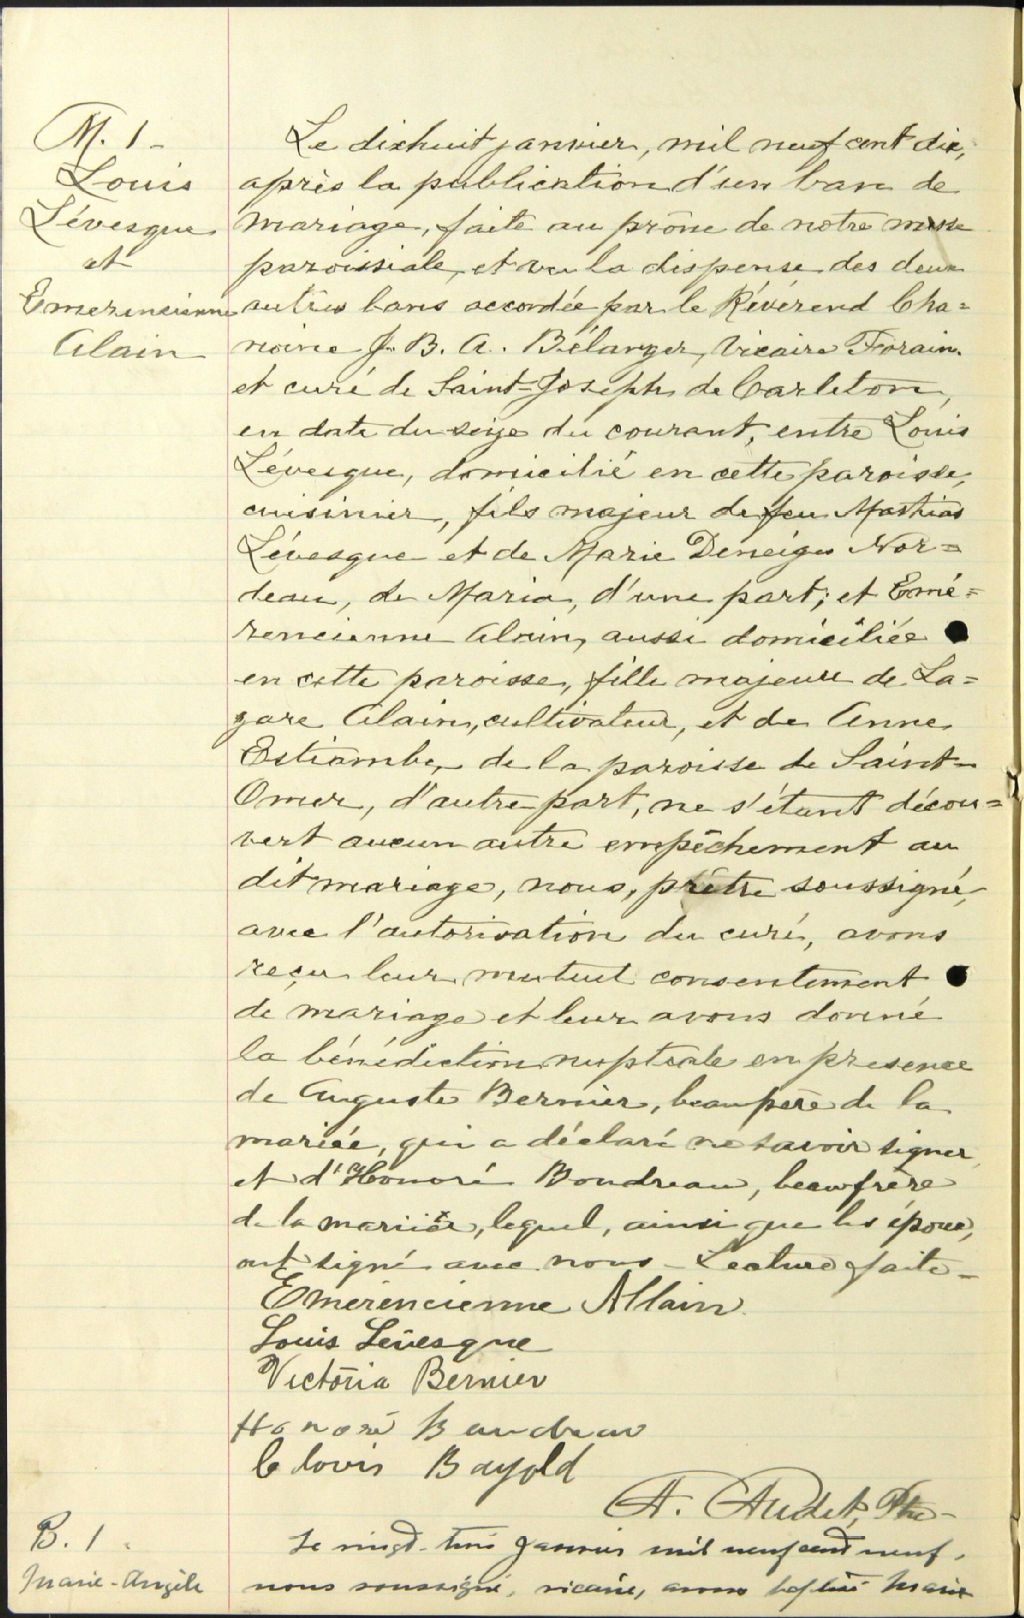 M. 1 -
Louis
Lévesque
et
Emerencienne
Alain
Le dixhuit janvier, mil neuf cent dix,
après la publication d'un ban de
mariage, faite au prône de notre messe
paroissiale, et vu la dispense des deux
autres bans accordée par le Révérend Cha=
noine J. B. A. Bélanger, Vicaire Forain
et curé de Saint-Joseph de Carleton,
en date du seize du courant, entre Louis
Lévesque, domicilié en cette paroisse,
cuisinier, fils majeur de feu Mathias
Lévesque et de Marie Deneiges Nor=
deau, de Maria, d'une part; et Emé=
rencienne Alain, aussi domiciliée
en cette paroisse, fille majeure de La=
zare Alain, cultivateur, et de Anne
Estiambe, de la paroisse de Saint-
Omer, d'autre part, ne s'étant décou=
vert aucun autre empêchement au
dit mariage, nous, prêtre soussigné,
avec l'autorisation du curé, avons
reçu leur mutuel consentement
de mariage et leur avons donné
la bénédiction nuptiale en présence
de Auguste Bernier, beaupère de la
mariée, qui a déclaré ne savoir signer
et d'Honoré Boudreau, beaufrère
de la mariée, lequel, ainsi que les époux,
ont signé avec nous - Lecture faite -
Emérencienne Allain
Louis Lévesque
Victoria Bernier
Honoré Boudreau
Clovis Bayold
A. Audet, Ptre -
B. 1
Marie-Angèle
Le vingt-trois janvier mil neuf cent neuf,
nous soussigné, vicaire, avons baptisé Marie